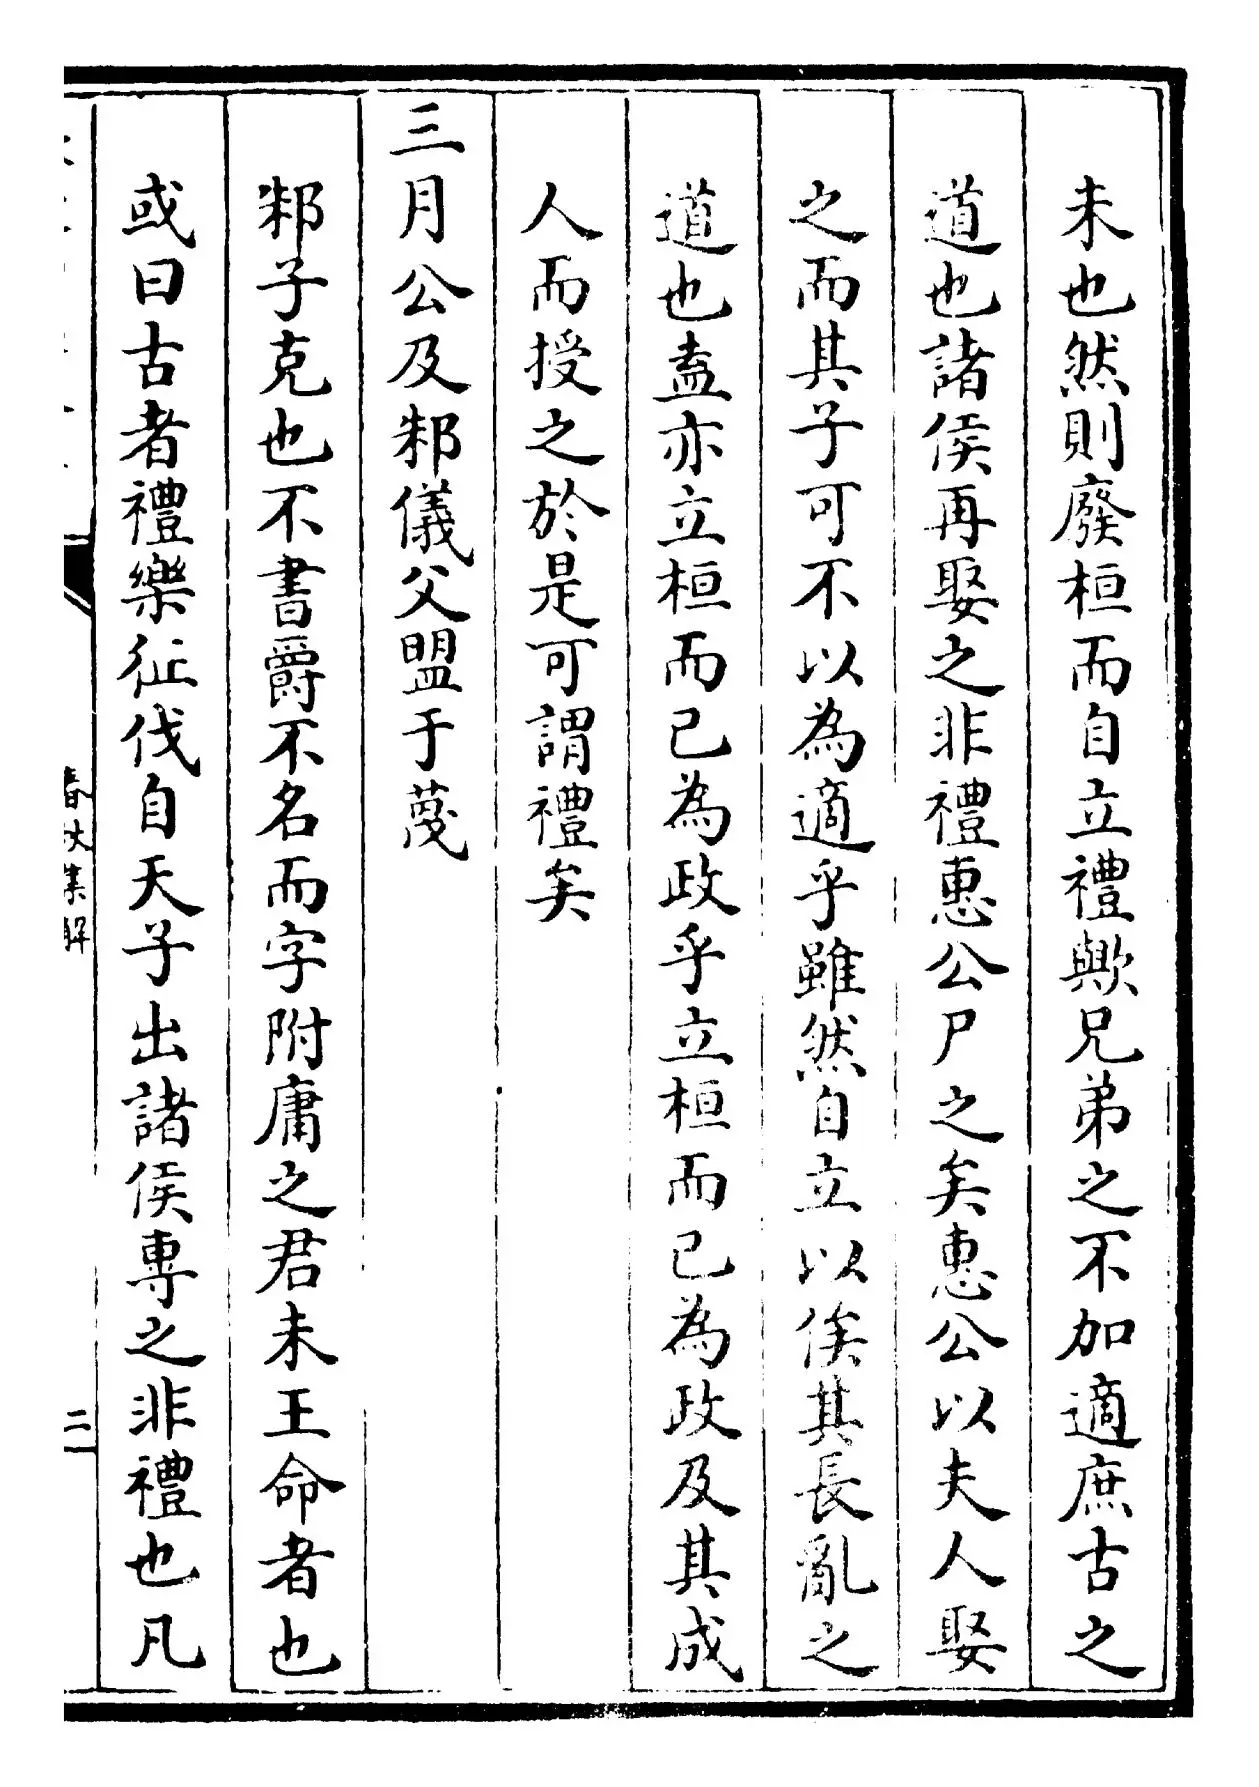 未也然則廢桓而自立禮歟兄弟之不加適庶古之
道也諸侯再娶之非禮惠公尸之矣惠公以夫人娶
之而其子可不以為適乎雖然自立以俟其長亂之
道也盖亦立桓而已為政乎立桓而已為政及其成
人而授之於是可謂禮矣
三月公及邾儀父盟于蔑
邾子克也不書爵不名而字附庸之君未王命者也
或曰古者禮樂征伐自天子出諸侯專之非禮也凡
春秋集解
二